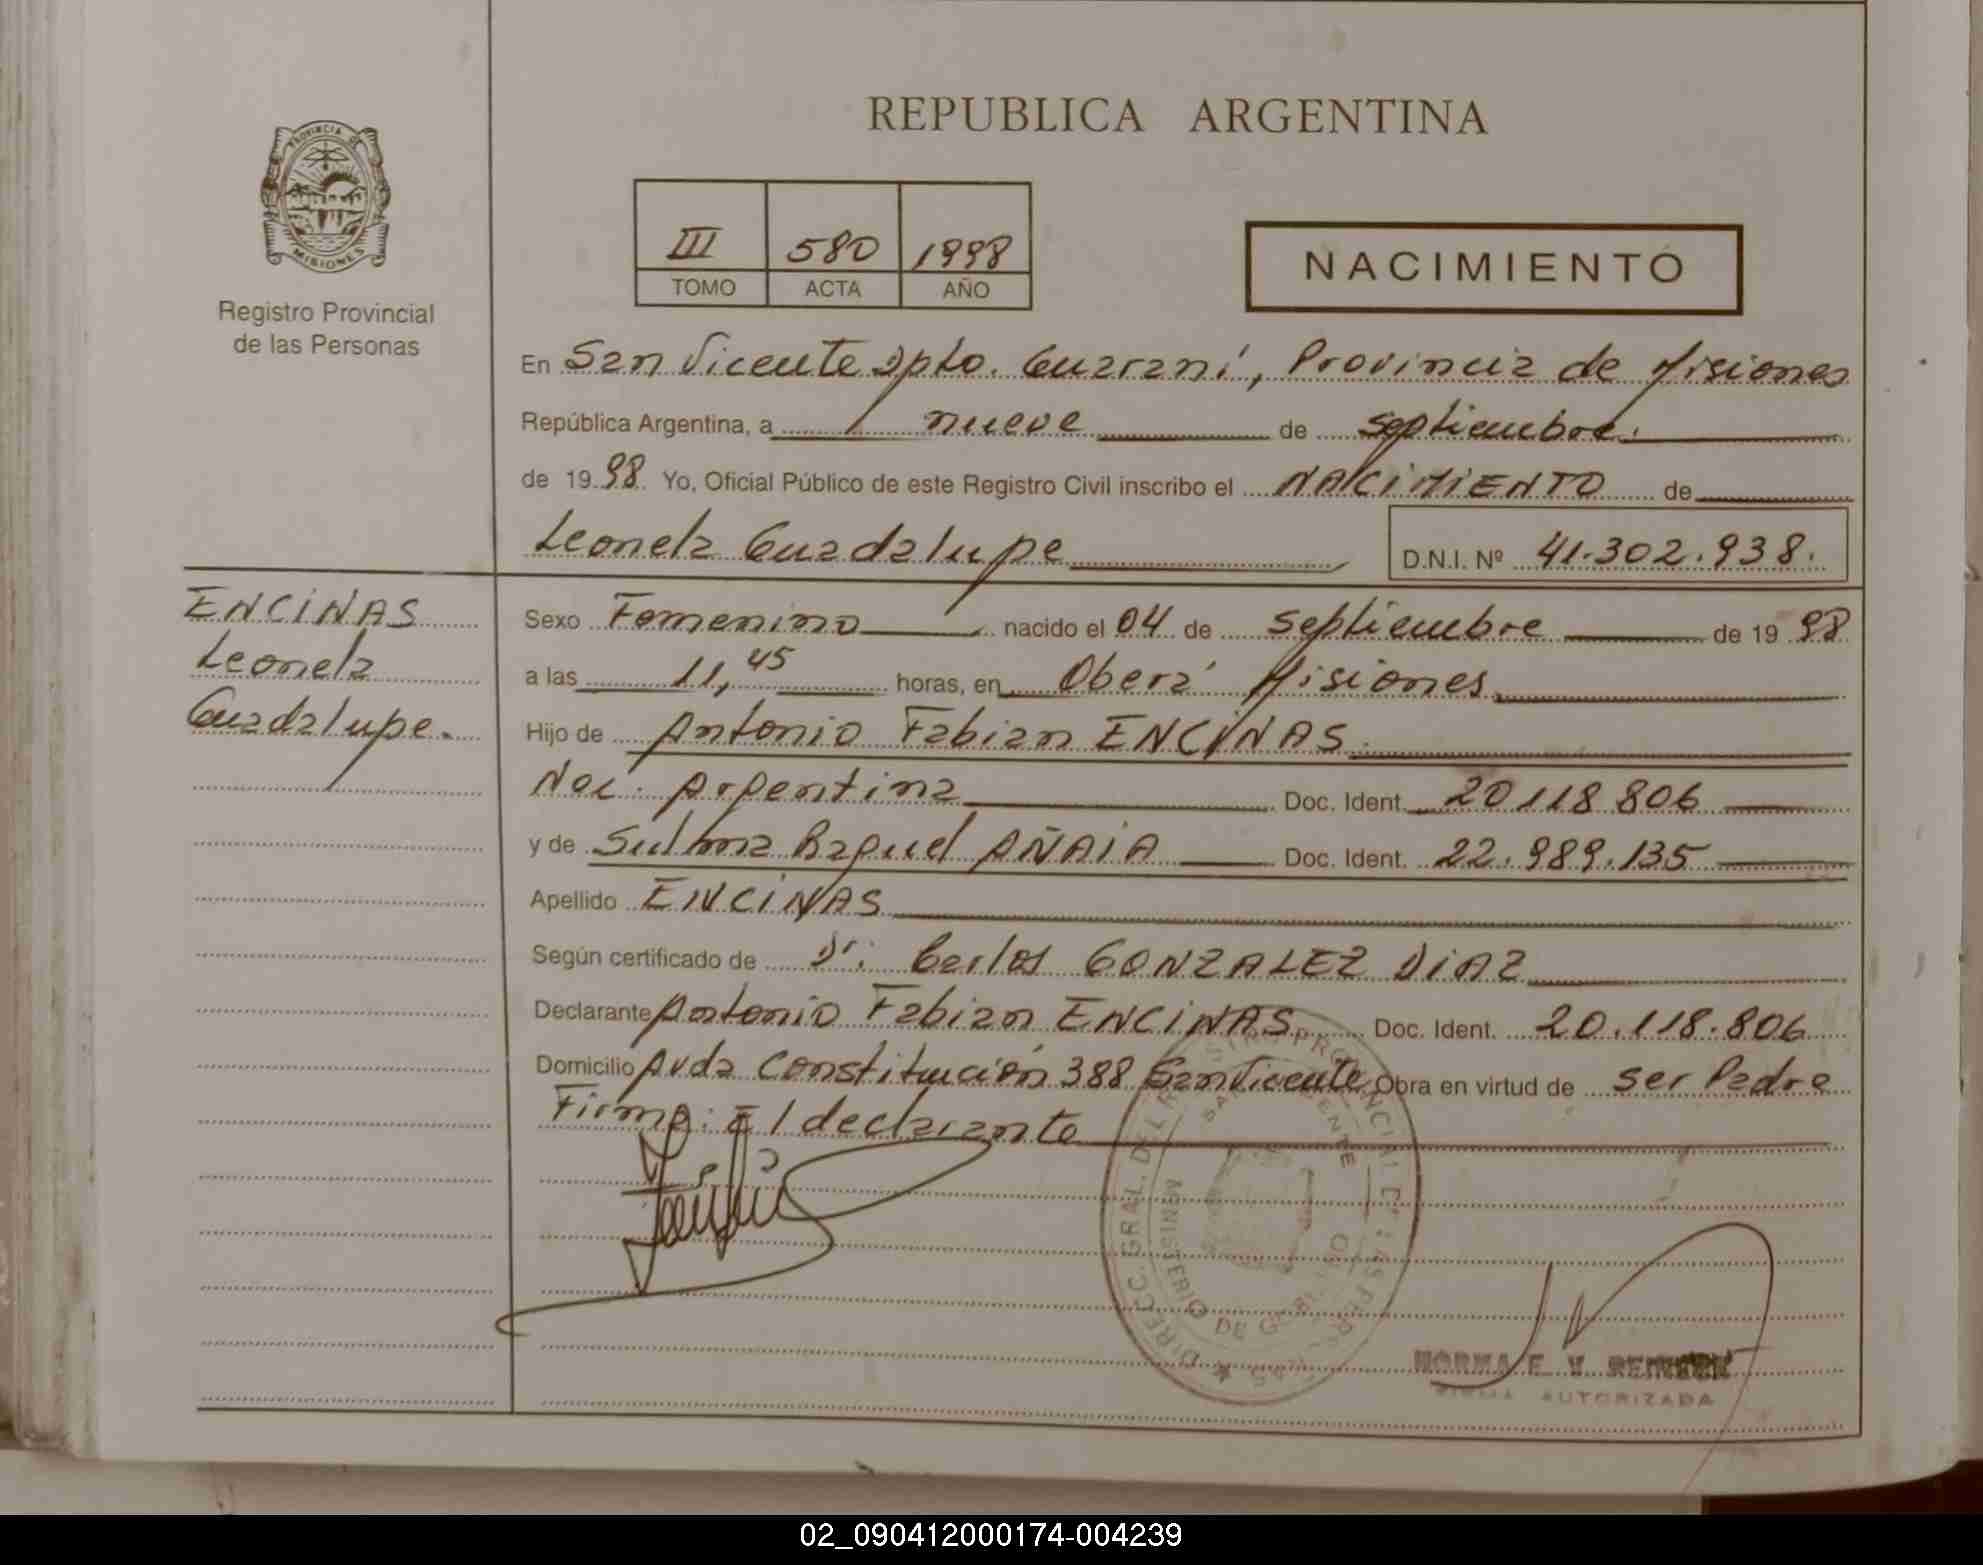 REPUBLICA ARGENTINA
PROVINCIA DE
MISIONES
Registro Provincial
de las Personas
III 580 1998
TOMO ACTA AÑO
NACIMIENTO
En San Vicente Dpto. Guaraní, Provincia de Misiones
República Argentina, a nueve de septiembre.
de 1998. Yo, Oficial Público de este Registro Civil inscribo el NACIMIENTO de
Leonela Guadalupe
D.N.I. Nº 41.302.938.
ENCINAS
Leonela
Guadalupe.
Sexo Femenino nacido el 04 de septiembre de 1998
a las 11,45 horas, en Oberá Misiones
Hijo de Antonio Fabian ENCINAS
Nac. Argentina Doc. Ident. 20118806
y de Sulma Raquel AÑAIA Doc. Ident. 22.989.135
Apellido ENCINAS
Según certificado de Dr. Carlos GONZALEZ DIAZ
Declarante Antonio Fabian ENCINAS Doc. Ident. 20.118.806
Domicilio Avda Constitución 388 San Vicente Obra en virtud de ser Padre
Firma: El declarante
DIRECC. GRAL. DEL REGISTRO PROVINCIAL
SAN VICENTE
MINISTERIO DE GOBIERNO
NORMA E. V.
FIRMA AUTORIZADA
02_090412000174-004239